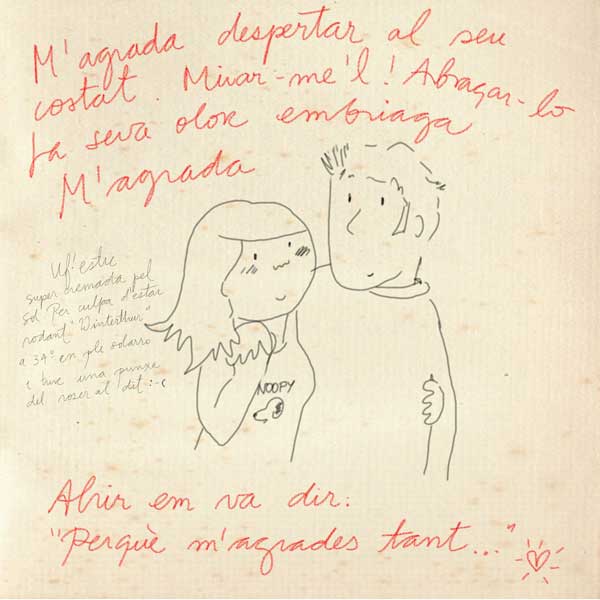 M'agrada despertar al seu
costat. Mirar-me'l! Abraçar-lo
La seva olor embriaga
M'agrada
Uf! estic
super cremada pel
sol Per culpa d'estar
rodant "Winterthur"
a 34º en ple
i tinc una punxa
del roser al dit :-(
NOOPY
Ahir em va dir:
"Perquè m'agrades tant..."